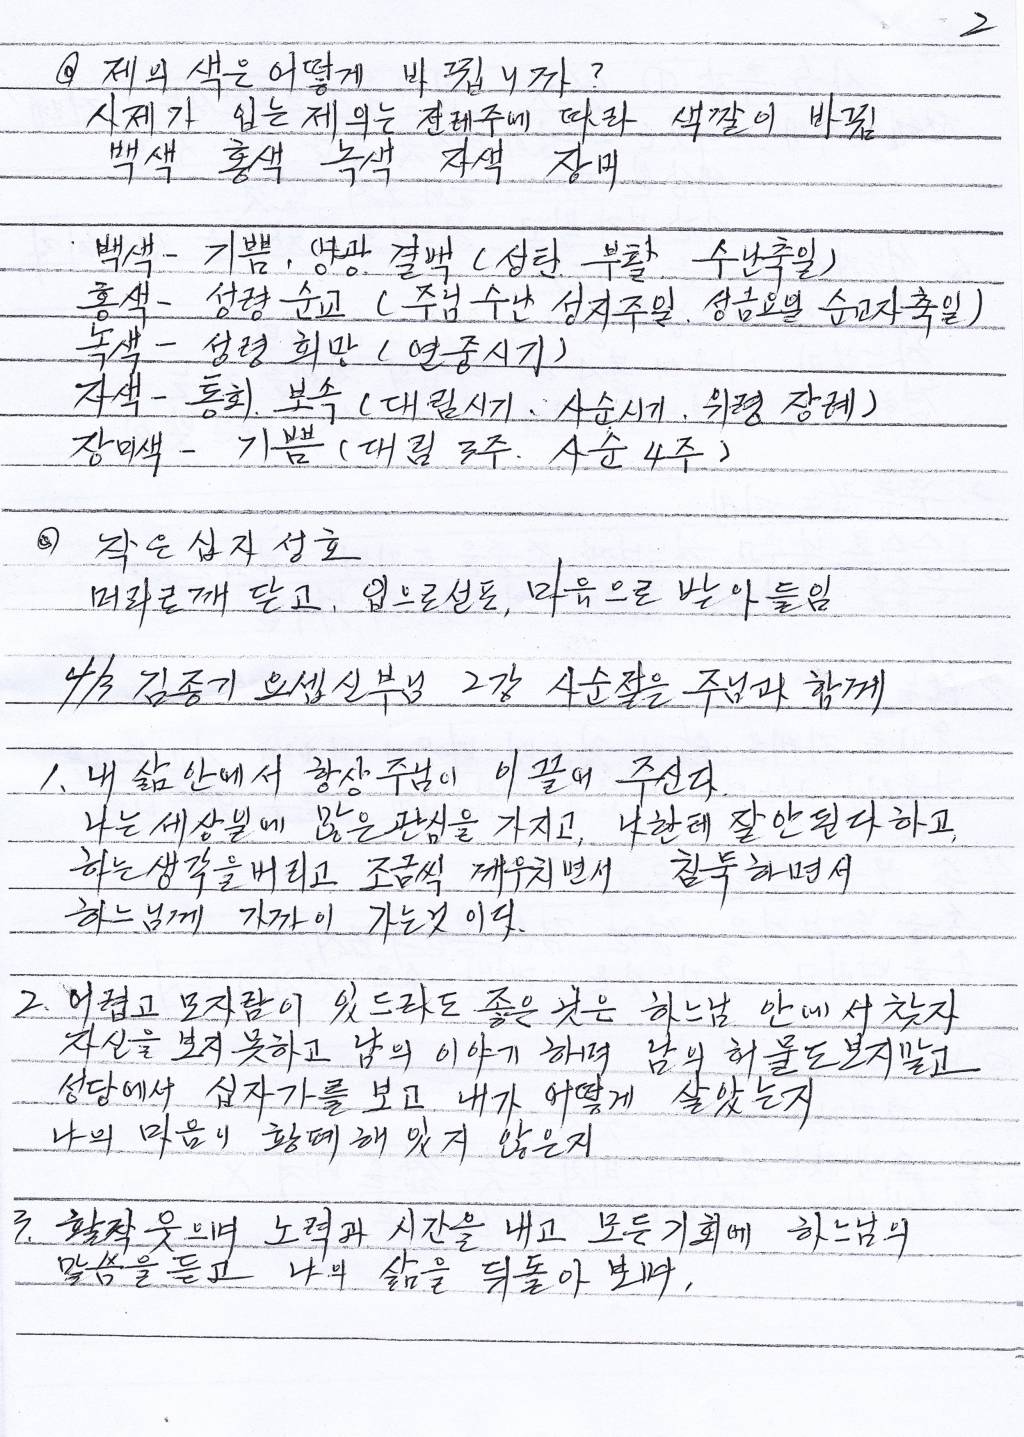 2
@ 제의 색은 어떻게 바뀝니까?
사제가 입는 제의는 전례주에 따라 색깔이 바뀜
백색 홍색 녹색 자색 장미
백색 - 기쁨, 영광, 결백 (성탄. 부활. 수난축일)
홍색 - 성령 순교 (주님수난 성지주일. 성금요일 순교자축일)
녹색 - 성령 희망 (연중시기)
자색 - 통회. 보속 (대림시기. 사순시기. 위령 장례)
장미색 - 기쁨 (대림 3주. 사순 4주)
@ 작은 십자성호
머리로깨닫고, 입으로선포, 마음으로 받아들임
4/3 김종기 요셉신부님 2강 사순절은 주님과 함께
1. 내 삶안에서 항상 주님이 이끌어 주신다.
나는 세상일에 많은 관심을 가지고, 나한테 잘안된다하고,
하는생각을버리고 조금씩 깨우치면서 침묵하면서
하느님께 가까이 가는것이다.
2. 어렵고 모자람이 있드라도 좋은 것은 하느님 안에서 찾자
자신을 보지못하고 남의 이야기 하며 남의 허물도보지말고
성당에서 십자가를 보고 내가 어떻게 살았는지
나의 마음이 황폐해있지 않은지
3. 활짝웃으며 노력과 시간을 내고 모든기회에 하느님의
말씀을듣고 나의 삶을 뒤돌아보며,